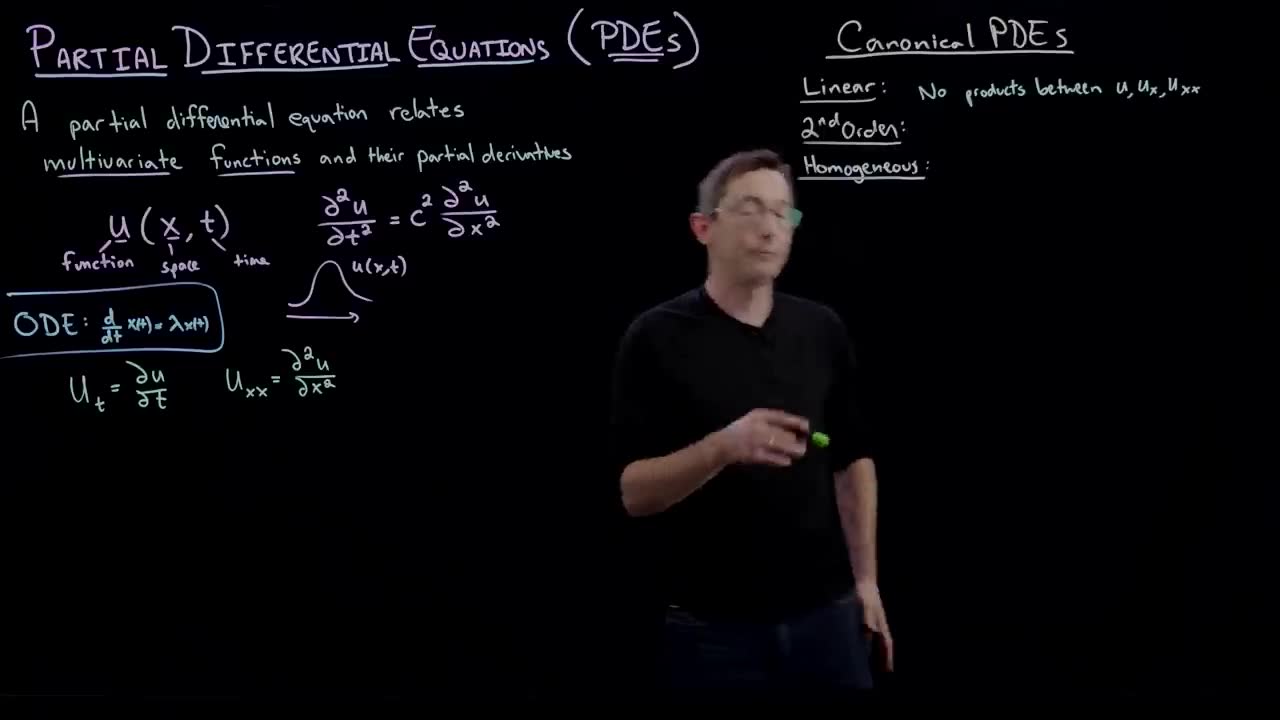 PARTIAL DIFFERENTIAL EQUATIONS (PDEs)
A partial differential equation relates
multivariate functions and their partial derivatives
u(x,t)
function space time
∂²u/∂t² = c² ∂²u/∂x²
u(x,t)
ODE: d/dt x(t) = λx(t)
U_t = ∂u/∂t
U_xx = ∂²u/∂x²
Canonical PDEs
Linear: No products between u, u_x, u_xx
2nd Order:
Homogeneous: